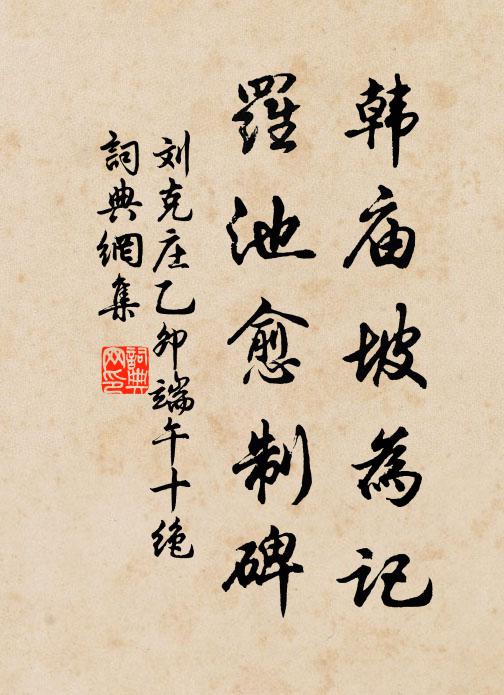 韩庙坡為记
羅池愈制碑
刘克庄乙卯端午十绝
詞典網集
詞典网印